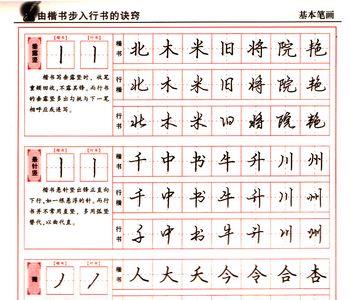 由楷书步入行书的诀窍
基本笔画
垂露竖
楷书写垂露竖时，收笔
重顿回收，不露其锋。而行书
的垂露竖多出勾挑与下一笔
相呼应或连写。
楷书 北 木 米 旧 将 院 艳
行楷 北 木 米 旧 将 院 艳
行书 北 木 米 旧 将 院 艳
悬针竖
楷书悬针竖出锋正直向
下行，如一根悬浮的针。而行书
并不常用直竖，多用弧竖
替代，以曲代直。
楷书 千 中 书 牛 升 川 州
行楷 千 中 书 牛 升 川 州
行书 千 中 书 牛 升 川 州
楷书 人 大 夭 今 令 合 杏